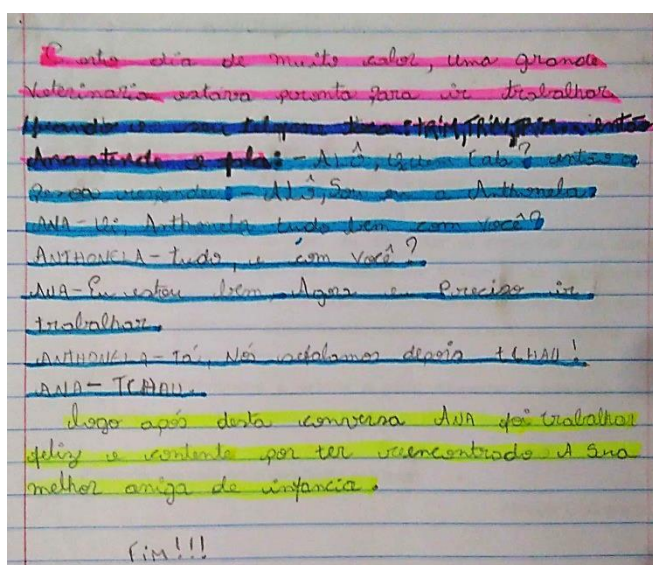 Certo dia de muito calor, uma grande
veterinaria estava pronta para ir trabalhar
Quando o seu telefone toca: TRIM, TRIM, TRIM então
Ana atende e fala: - ALÔ, Quem Fala? então a
pesoa responde: - ALÔ, Sou eu a Anthonela
ANA - Oi Anthonela tudo bem com você?
ANTHONELA - tudo, e com você?
ANA - Eu estou bem, Agora eu Preciso ir
trabalhar.
ANTHONELA - Tá, Nós falamos depois tCHAU!
ANA - TCHAU.
Logo após desta conversa ANA foi trabalhar
feliz e contente por ter reencontrado A Sua
melhor amiga de infancia.
FiM!!!